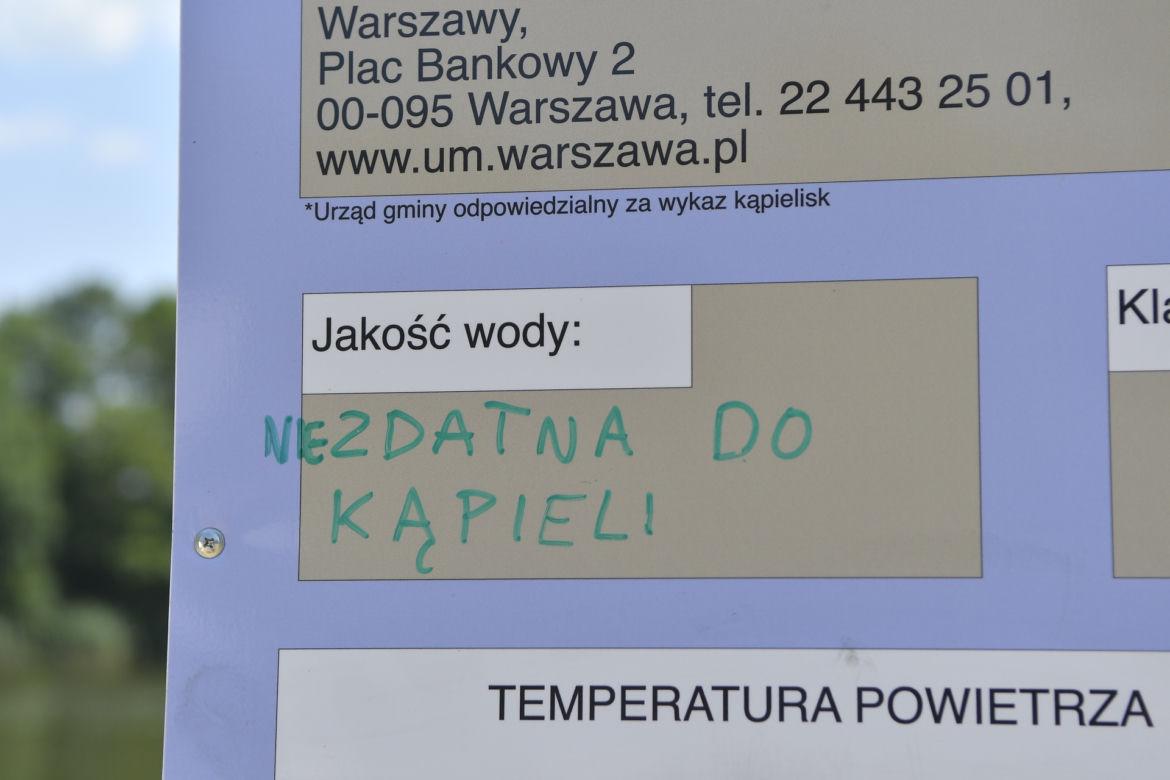 Warszawy,
Plac Bankowy 2
00-095 Warszawa, tel. 22 443 25 01,
www.um.warszawa.pl
*Urząd gminy odpowiedzialny za wykaz kąpielisk
Jakość wody:
NIEZDATNA DO
KĄPIELI
TEMPERATURA POWIETRZA